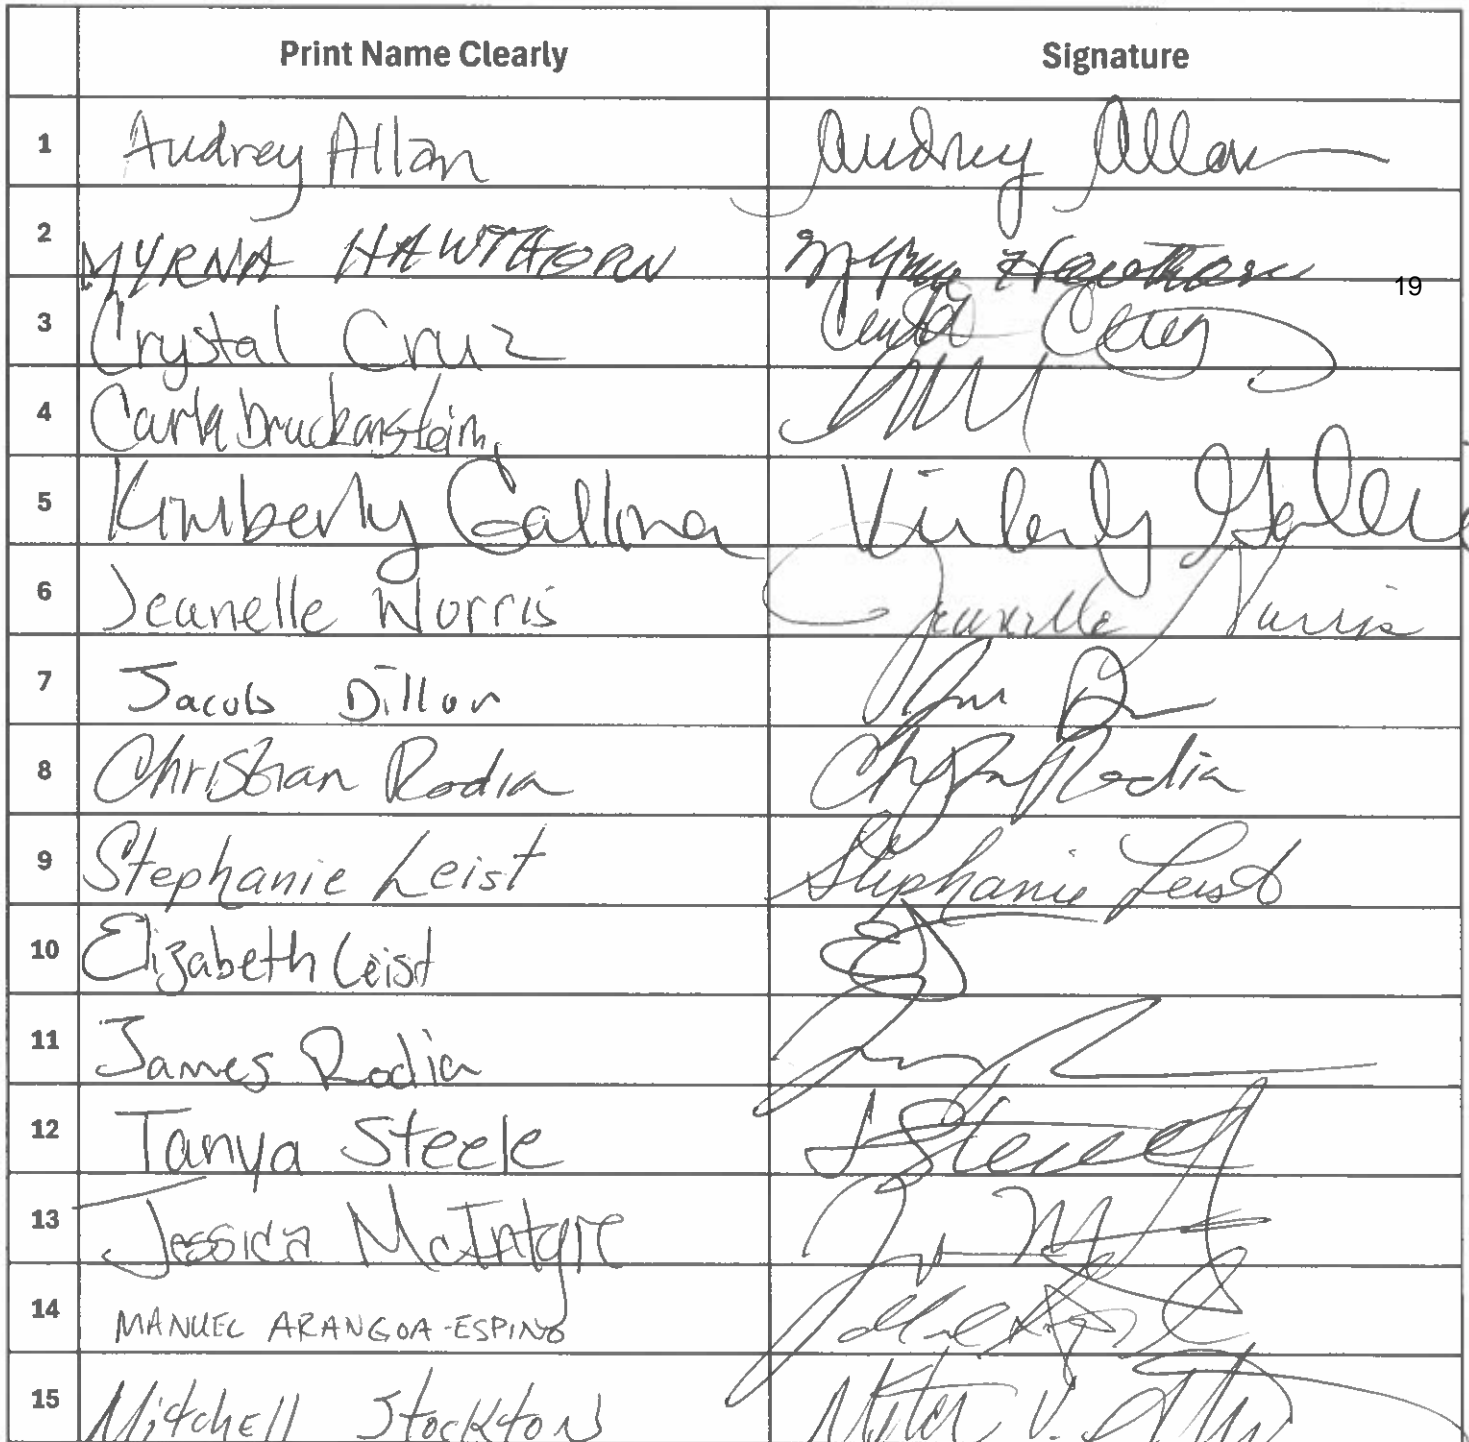 Print Name Clearly Signature
1 Audrey Allan Audrey Allan
2 MYRNA HAWTHORN Myrna Hawthorn
19
3 Crystal Cruz
4 Carla bruckenstein
5 Kimberly Gallina Kimberly
6 Jeanelle Norris Jeanelle Norris
7 Jacob Dillon
8 Christian Rodia Rodia
9 Stephanie Leist Stephanie Leist
10 Elizabeth Leist
11 James Rodia
12 Tanya Steele
13 Jessica McIntyre
14 MANUEL ARANGOA-ESPINO
15 Mitchell Stockton